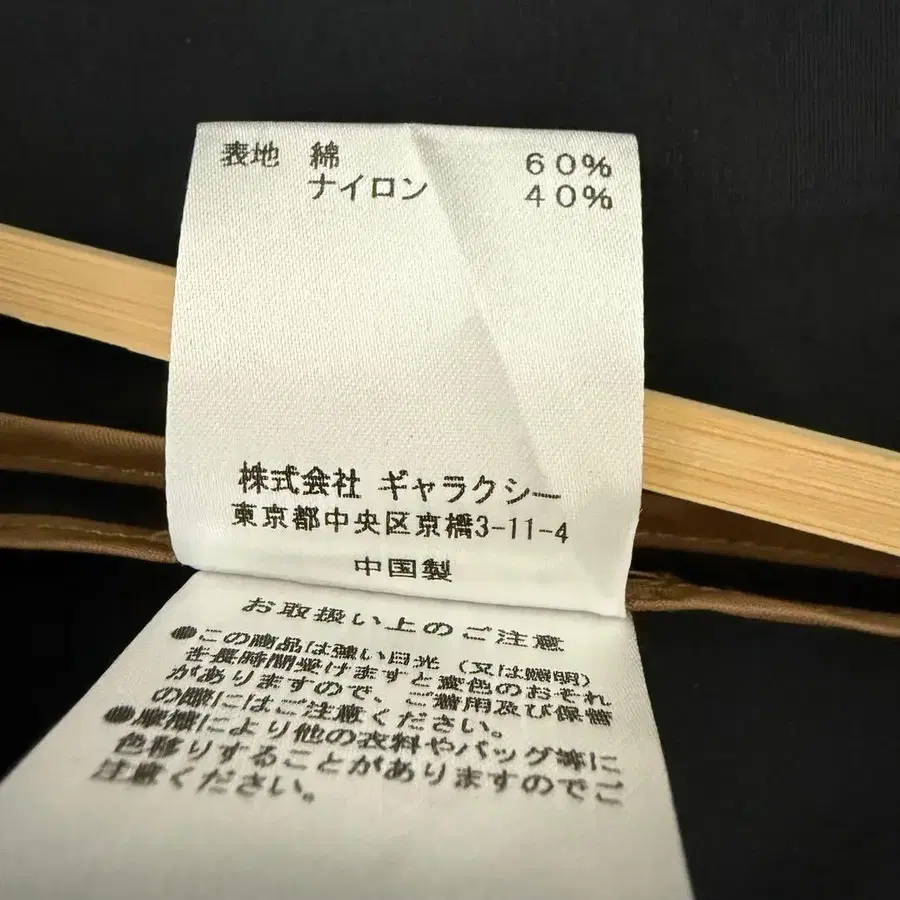 表地 綿 60%
ナイロン 40%
株式会社 ギャラクシー
東京都中央区京橋3-11-4
中国製
お取扱い上のご注意
●この商品は強い日光(又は照明)
を長時間受けますと変色のおそれ
がありますので、ご着用及び保管
の際にはご注意ください。
●摩擦により他の衣料やバッグ等に
色移りすることがありますのでご
注意ください。